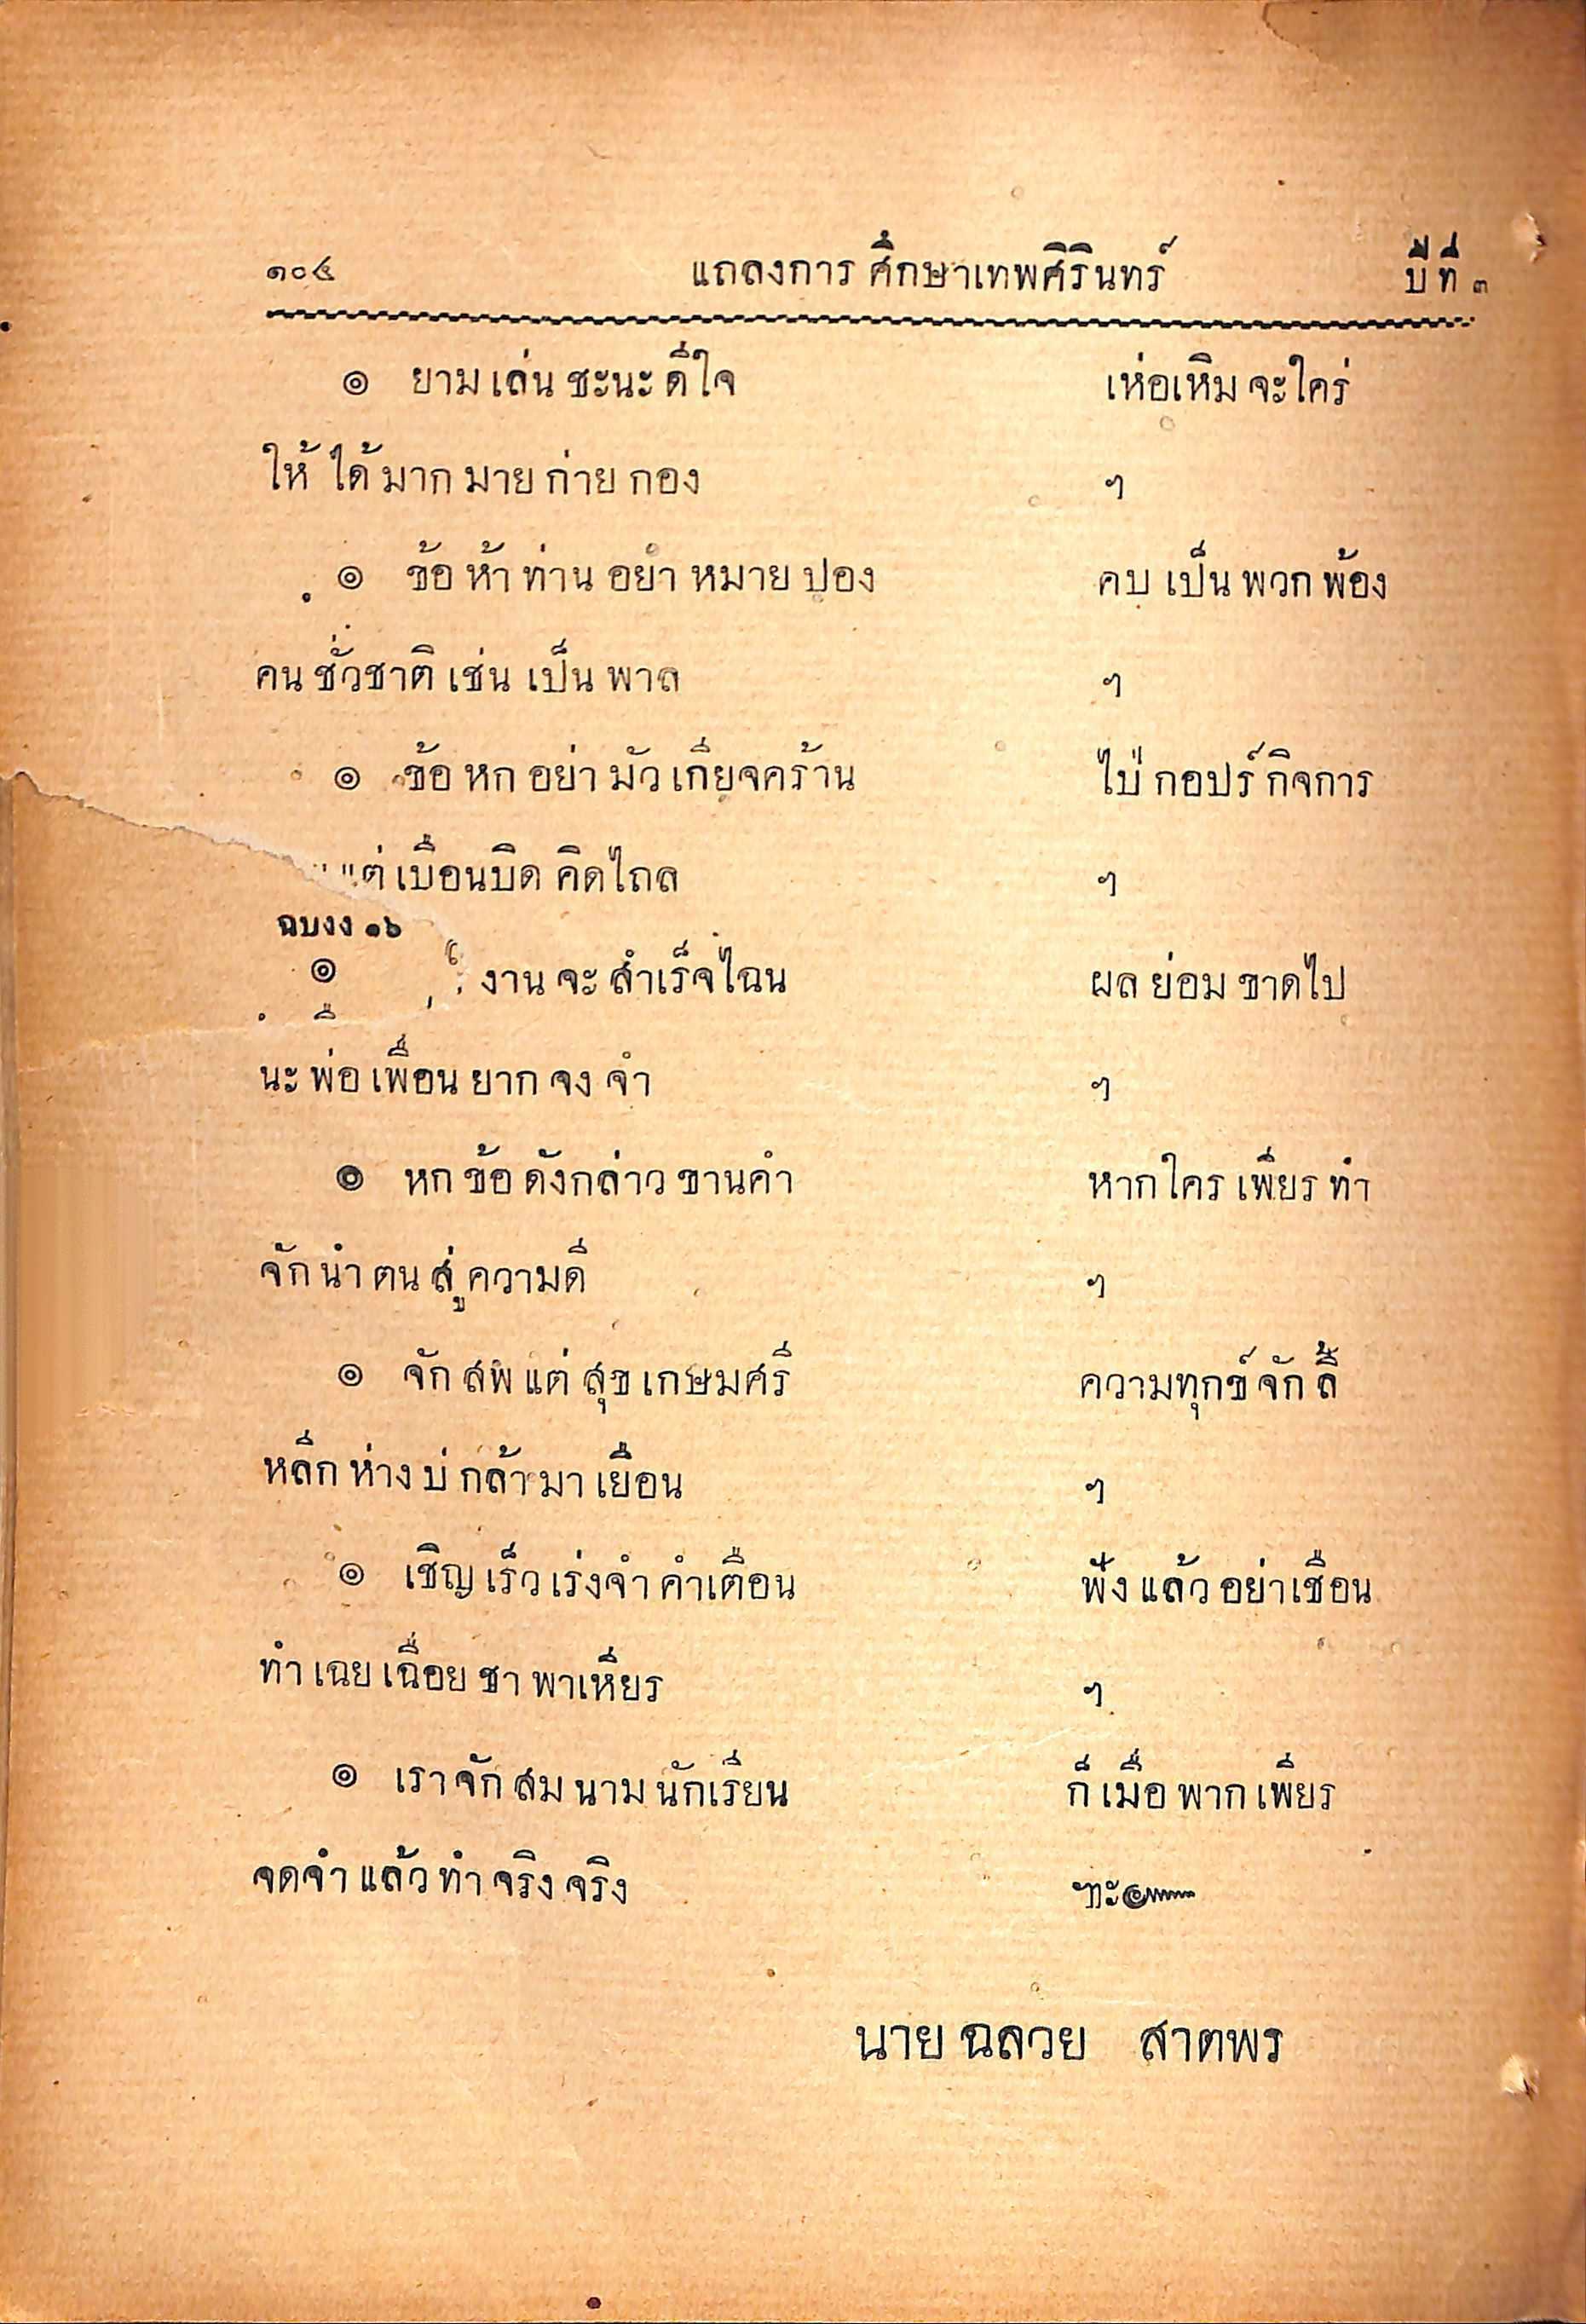 ๑๐๔ แถลงการศึกษาเทพศิรินทร์ ปีที่ ๓
๏ ยามเล่นชะนะดีใจ เห่อเหิมจะใคร่
ให้ได้มากมายก่ายกอง ฯ
๏ ข้อห้าท่านอย่าหมายปอง คบเป็นพวกพ้อง
คนชั่วชาติเช่นเป็นพาล ฯ
๏ ข้อหกอย่ามัวเกียจคร้าน ไป่กอปร์กิจการ
แต่เบือนบิดคิดไถล ฯ
ฉบงง ๑๖
๏ งานจะสำเร็จไฉน ผลย่อมขาดไป
นะพ่อเพื่อนยากจงจำ ฯ
๏ หกข้อดังกล่าวขานคำ หากใครเพียรทำ
จักนำตนสู่ความดี ฯ
๏ จักสพแต่สุขเกษมศรี ความทุกข์จักลี้
หลีกห่างบ่กล้ามาเยือน ฯ
๏ เชิญเร็วเร่งจำคำเตือน ฟังแล้วอย่าเชือน
ทำเฉยเฉื่อยชาพาเหียร ฯ
๏ เราจักสมนามนักเรียน ก็เมื่อพากเพียร
จดจำแล้วทำจริงจริง ฯะ๛
นาย ฉลวย สาตพร